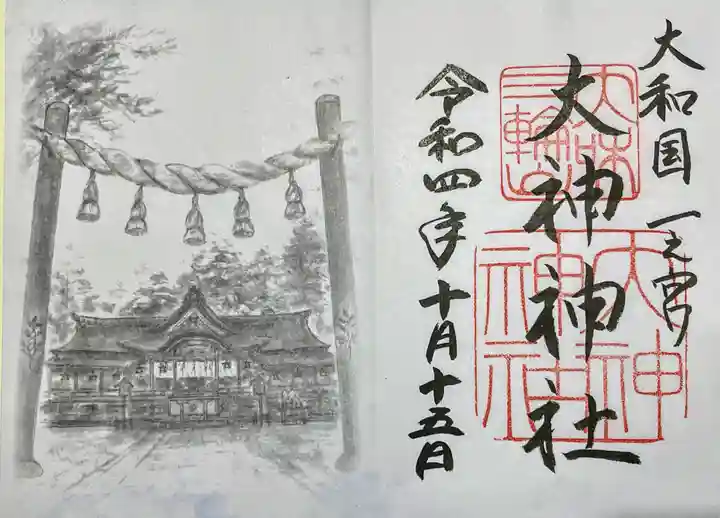 大和国 一之宮
大神神社
令和四年十月十五日
三輪
大神
神社